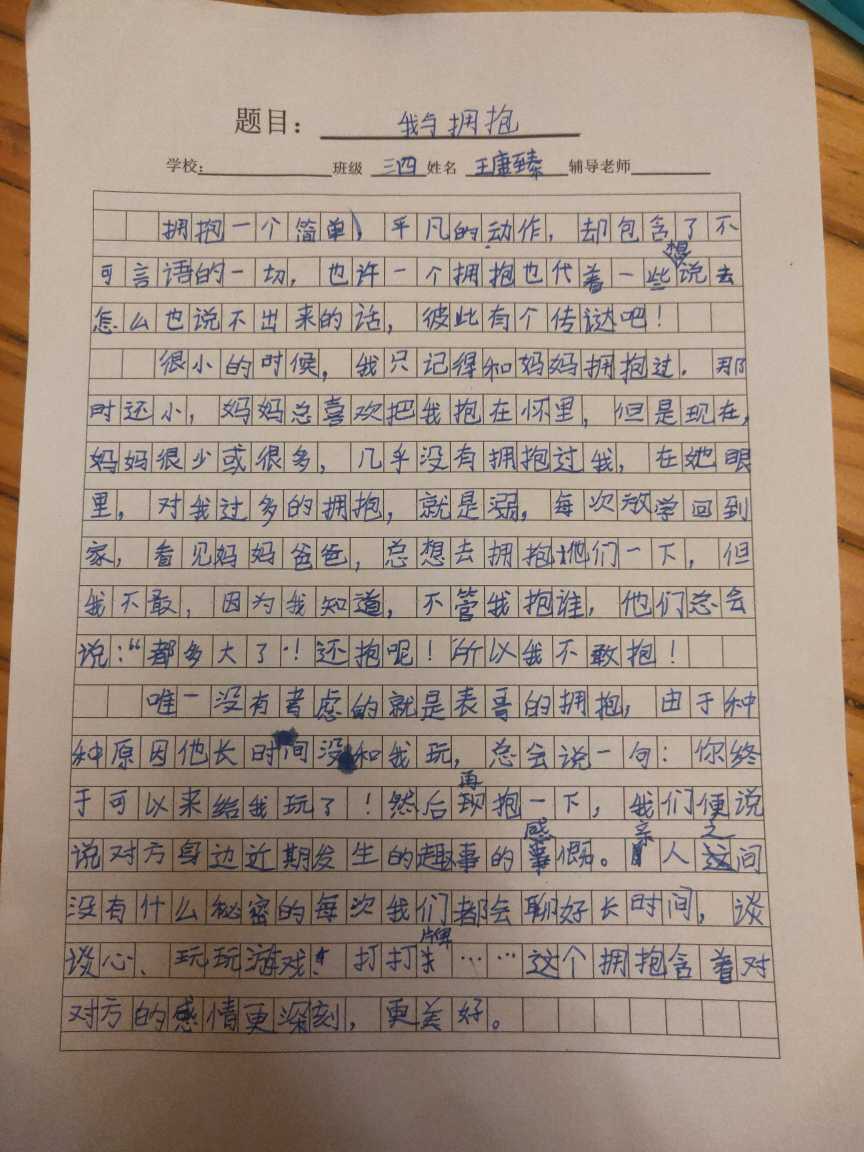 题目： 我与拥抱
学校： 班级 三四 姓名 王康臻 辅导老师
拥抱一个简单、平凡的动作，却包含了不
可言语的一切，也许一个拥抱也代着一些想说去
怎么也说不出来的话，彼此有个传达吧！
很小的时候，我只记得和妈妈拥抱过．那
时还小，妈妈总喜欢把我抱在怀里，但是现在，
妈妈很少或很多，几乎没有拥抱过我，在她眼
里，对我过多的拥抱，就是溺，每次放学回到
家，看见妈妈爸爸，总想去拥抱他们一下，但
我不敢，因为我知道，不管我抱谁，他们总会
说：“都多大了！还抱呢！所以我不敢抱！
唯一没有考虑的就是表哥的拥抱，由于种
种原因他长时间没和我玩，总会说一句：你终
于可以来给我玩了！然后再抱一下，我们便说
说对方身边近期发生的趣事的感。亲人之间
没有什么秘密的每次我们都会聊好长时间，谈
谈心、玩玩游戏！打打牌……这个拥抱含着对
对方的感情更深刻，更美好。